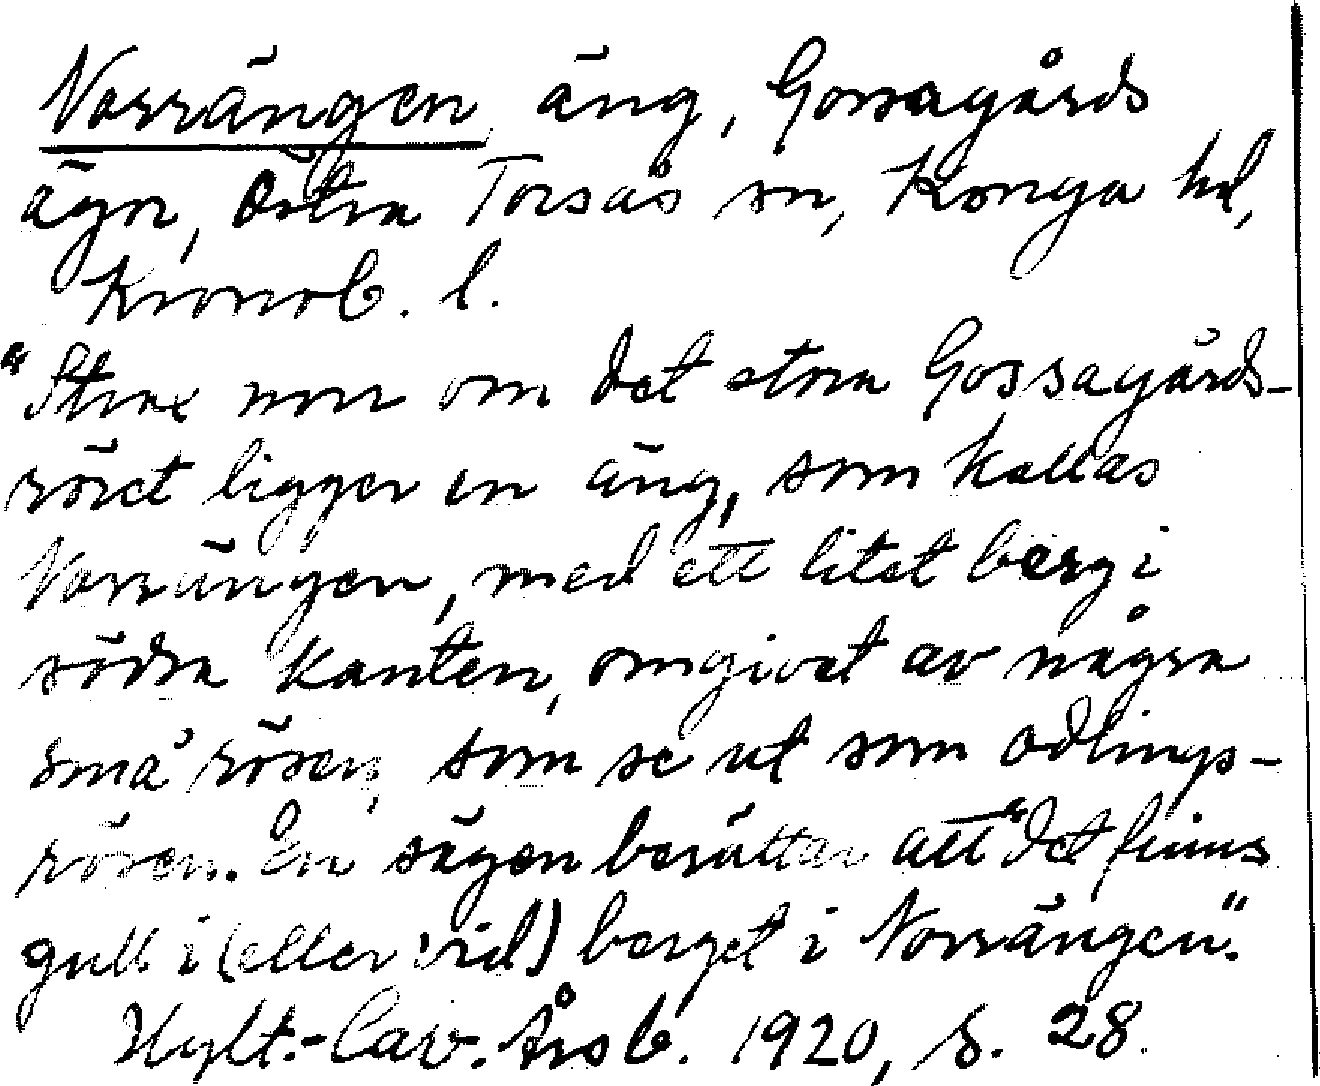 Norrängen, äng, Gossagårds
ägor, Östra Torsås sn, Konga hd,
Kronob. l.
"Strax norr om det stora Gossagårds-
röret ligger en äng, som kallas
Norrängen, med ett litet berg i
södra kanten, omgivet av några
små rösen, som se ut som odlings-
rösen. En sägen berättar att "det finns
gull i (eller vid) berget i Norrängen."
Hylt.-Cav. Årsb. 1920, s. 28.